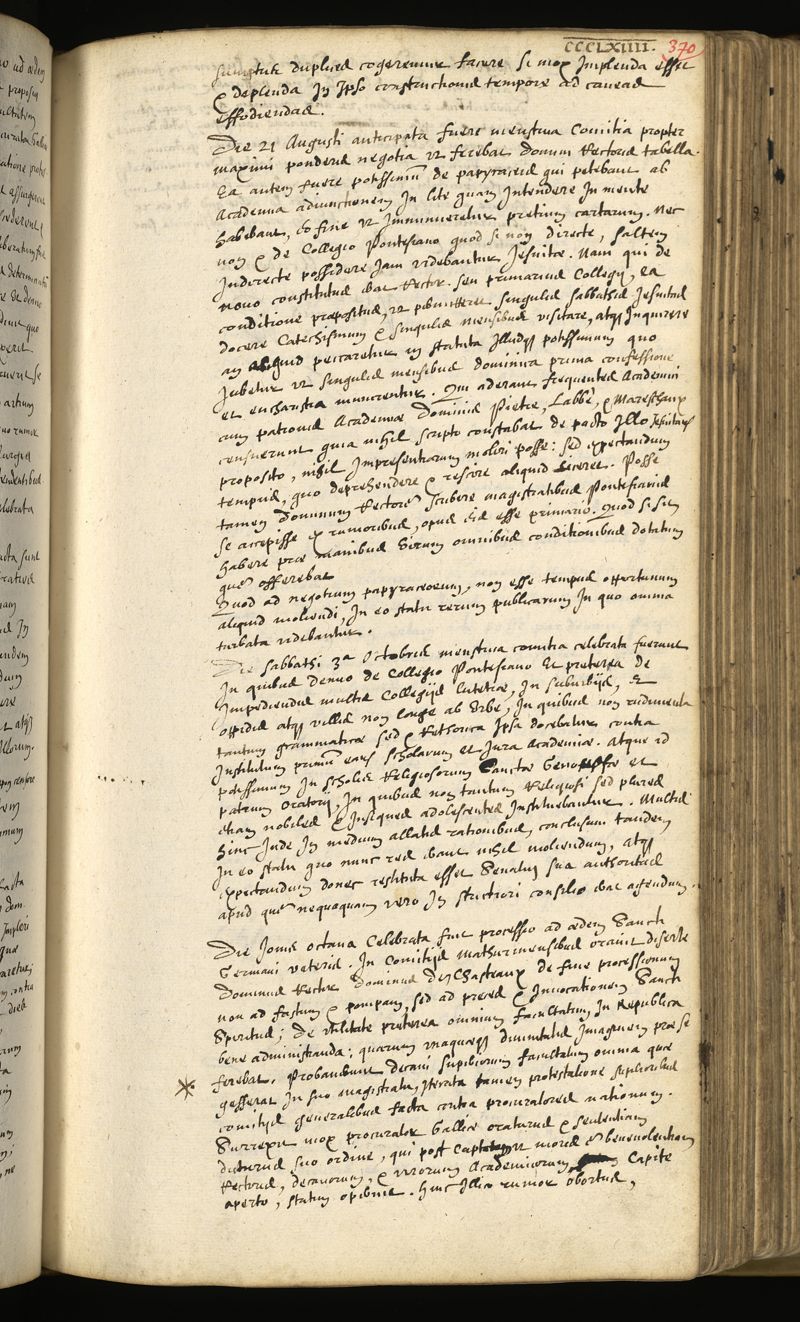 CCCLXIIII. 370
sumptus duplices cogeremur facere si mox implenda esset
& deplenda In Ipso constructionis tempore ad caueas
effodiendas.
Die 21 Augusti anticipata fuere menstrua Comitia propter
maximi ponderis negotia vt ferebat Domini Rectoris tabella.
Ea autem fuere potissimum de papyraceis qui petebant ab
Academia adiunctionem In lite quam Intendere In mente
habebant, eo fine vt Imminueretur pretium cartarum. Nec
non & de Collegio Pontesiano quod si non directe, saltem
Indirecte possidere Jam videbantur Jesuitæ. Nam qui de
nouo constitutus erat Rector. seu primarius Collegij, ea
conditione præpositus, vt permitteret singulis sabbathis Jesuitas
docere Catechismum & singulis mensibus visitare, atq Inquirere
an aliquid peccaretur in statuta Illudq potissimum quo
Jubetur vt singulis mensibus dominica prima confessione
et eucharistia munirentur. Qui aderant frequentes Academici
cum patronis Academiæ Dominis Pietre, Labbé, & Mareschaux
censuerunt quia nihil scripto constabat de pacto Illo Jesuitarum
proposito, nihil Impresentiarum moliri posse: sed expectandum
tempus, quo deprehendere & rescire aliquid liceret. Posse
tamen dominum Rectorem scribere magistratibus Pontesianis
se accepisse ex rumoribus, opus eis esse primario. Quod si sit
habere præ manibus virum omnibus conditionibus dotatum
quem offerebat
Quod ad negotium papyraceorum, non esse tempus opportunum
aliquid moliendi, In eo statu rerum publicarum In quo omnia
turbata videbantur.
Die sabbathi 3a Octobris menstrua comitia celebrata fuerunt
In quibus denuo de Collegio Pontesiano Et preterea de
Impediendis multis Collegijs Lutetiæ, In suburbijs, Et
oppidis atq villis non longe ab Vrbe, In quibus non rudimenta
tantum grammaticæ sed & Rethorica Ipsa docebatur contra
Institutum primum earum scholarum et Jura Academiæ. Atque id
potissimum In scholis Religiosorum Sanctæ Genouefæ et
patrum Oratorij, In quibus non tantum Religiosi sed plures
etiam nobiles & Insignes adolescentes Instituebantur. Multis
hinc Inde In medium allatis rationibus, conclusum tandem
In eo statu quo nunc res erant nihil moliendum, atq
expectandum donec restituta esset Senatui sua authoritas
apud quem nequaquam vero In strictiori consilio erat agendum.
Die Jouis octaua Celebrata fuit processio ad ædem Sancti
Germani veteris. In Comitijs Mathurinensibus orauit diserte
Dominus Rector Dominus Des Chasteaux de fine processionum
non ad fastum & pompam, sed ad preces & Inuocationem Sancti
Spiritus; De vtilitate preterea omnium facultatum In Republica
bene administranda; quarum vnaquæq diuinitatis Imaginem præ se
ferebat. Probauerunt decani superiorum facultatum omnia quæ
gesserat In suo magistratu, Iterata tamen protestatione superioribus
comitijs generalibus facta contra procuratores nationum.
Surrexit mox procurator Galliæ oraturus & sententiam
dicturus suo ordine, qui post Captatam vt moris est beneuolentiam
Rectoris, decanorum, & virorum Academicorum Capite
aperto, statim operuit. hinc Illico rumor obortus,